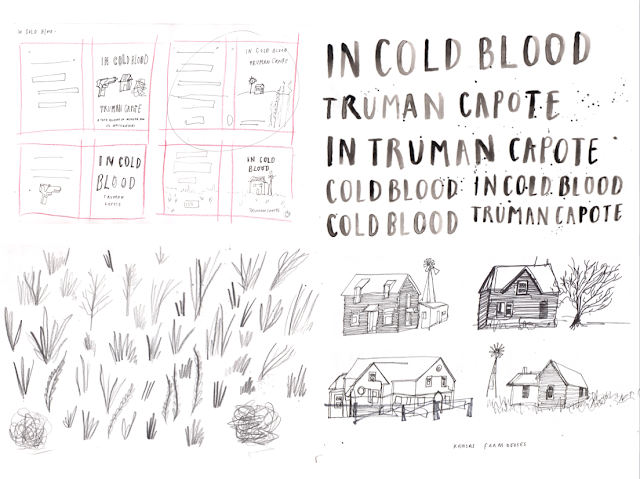 IN COLD BLOOD
IN COLD BLOOD
TRUMAN CAPOTE
IN COLD BLOOD
TRUMAN CAPOTE
IN COLD
BLOOD
TRUMAN
CAPOTE
IN COLD
BLOOD
TRUMAN CAPOTE
IN COLD BLOOD
TRUMAN CAPOTE
IN TRUMAN CAPOTE
COLD BLOOD IN COLD BLOOD
COLD BLOOD TRUMAN CAPOTE
KANSAS FARM HOUSES